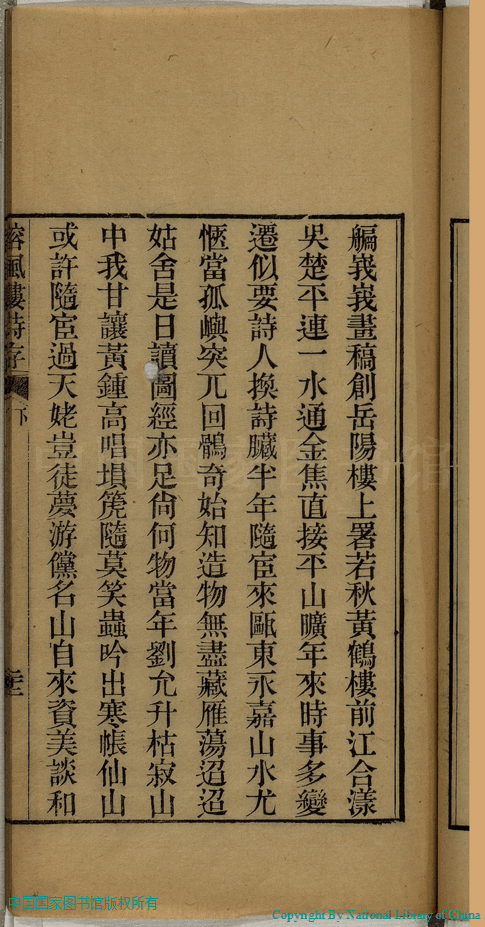 艑峩峩畫稿創岳陽樓上署若秋黃鶴樓前江合漾
吳楚平連一水通金焦直接平山曠年來時事多變
遷似要詩人換詩臟半年隨宦來甌東永嘉山水尤
愜當孤嶼突兀回鶻奇始知造物無盡藏雁蕩迢迢
姑舍是日讀圖經亦足尙何物當年劉允升枯寂山
中我甘讓黃鍾高唱塤箎隨莫笑蟲吟出寒帳仙山
或許隨宦過天姥豈徒夢游儻名山自來資美談和
容風樓詩存 下
中国国家图书馆版权所有
Copyright By National Library of China